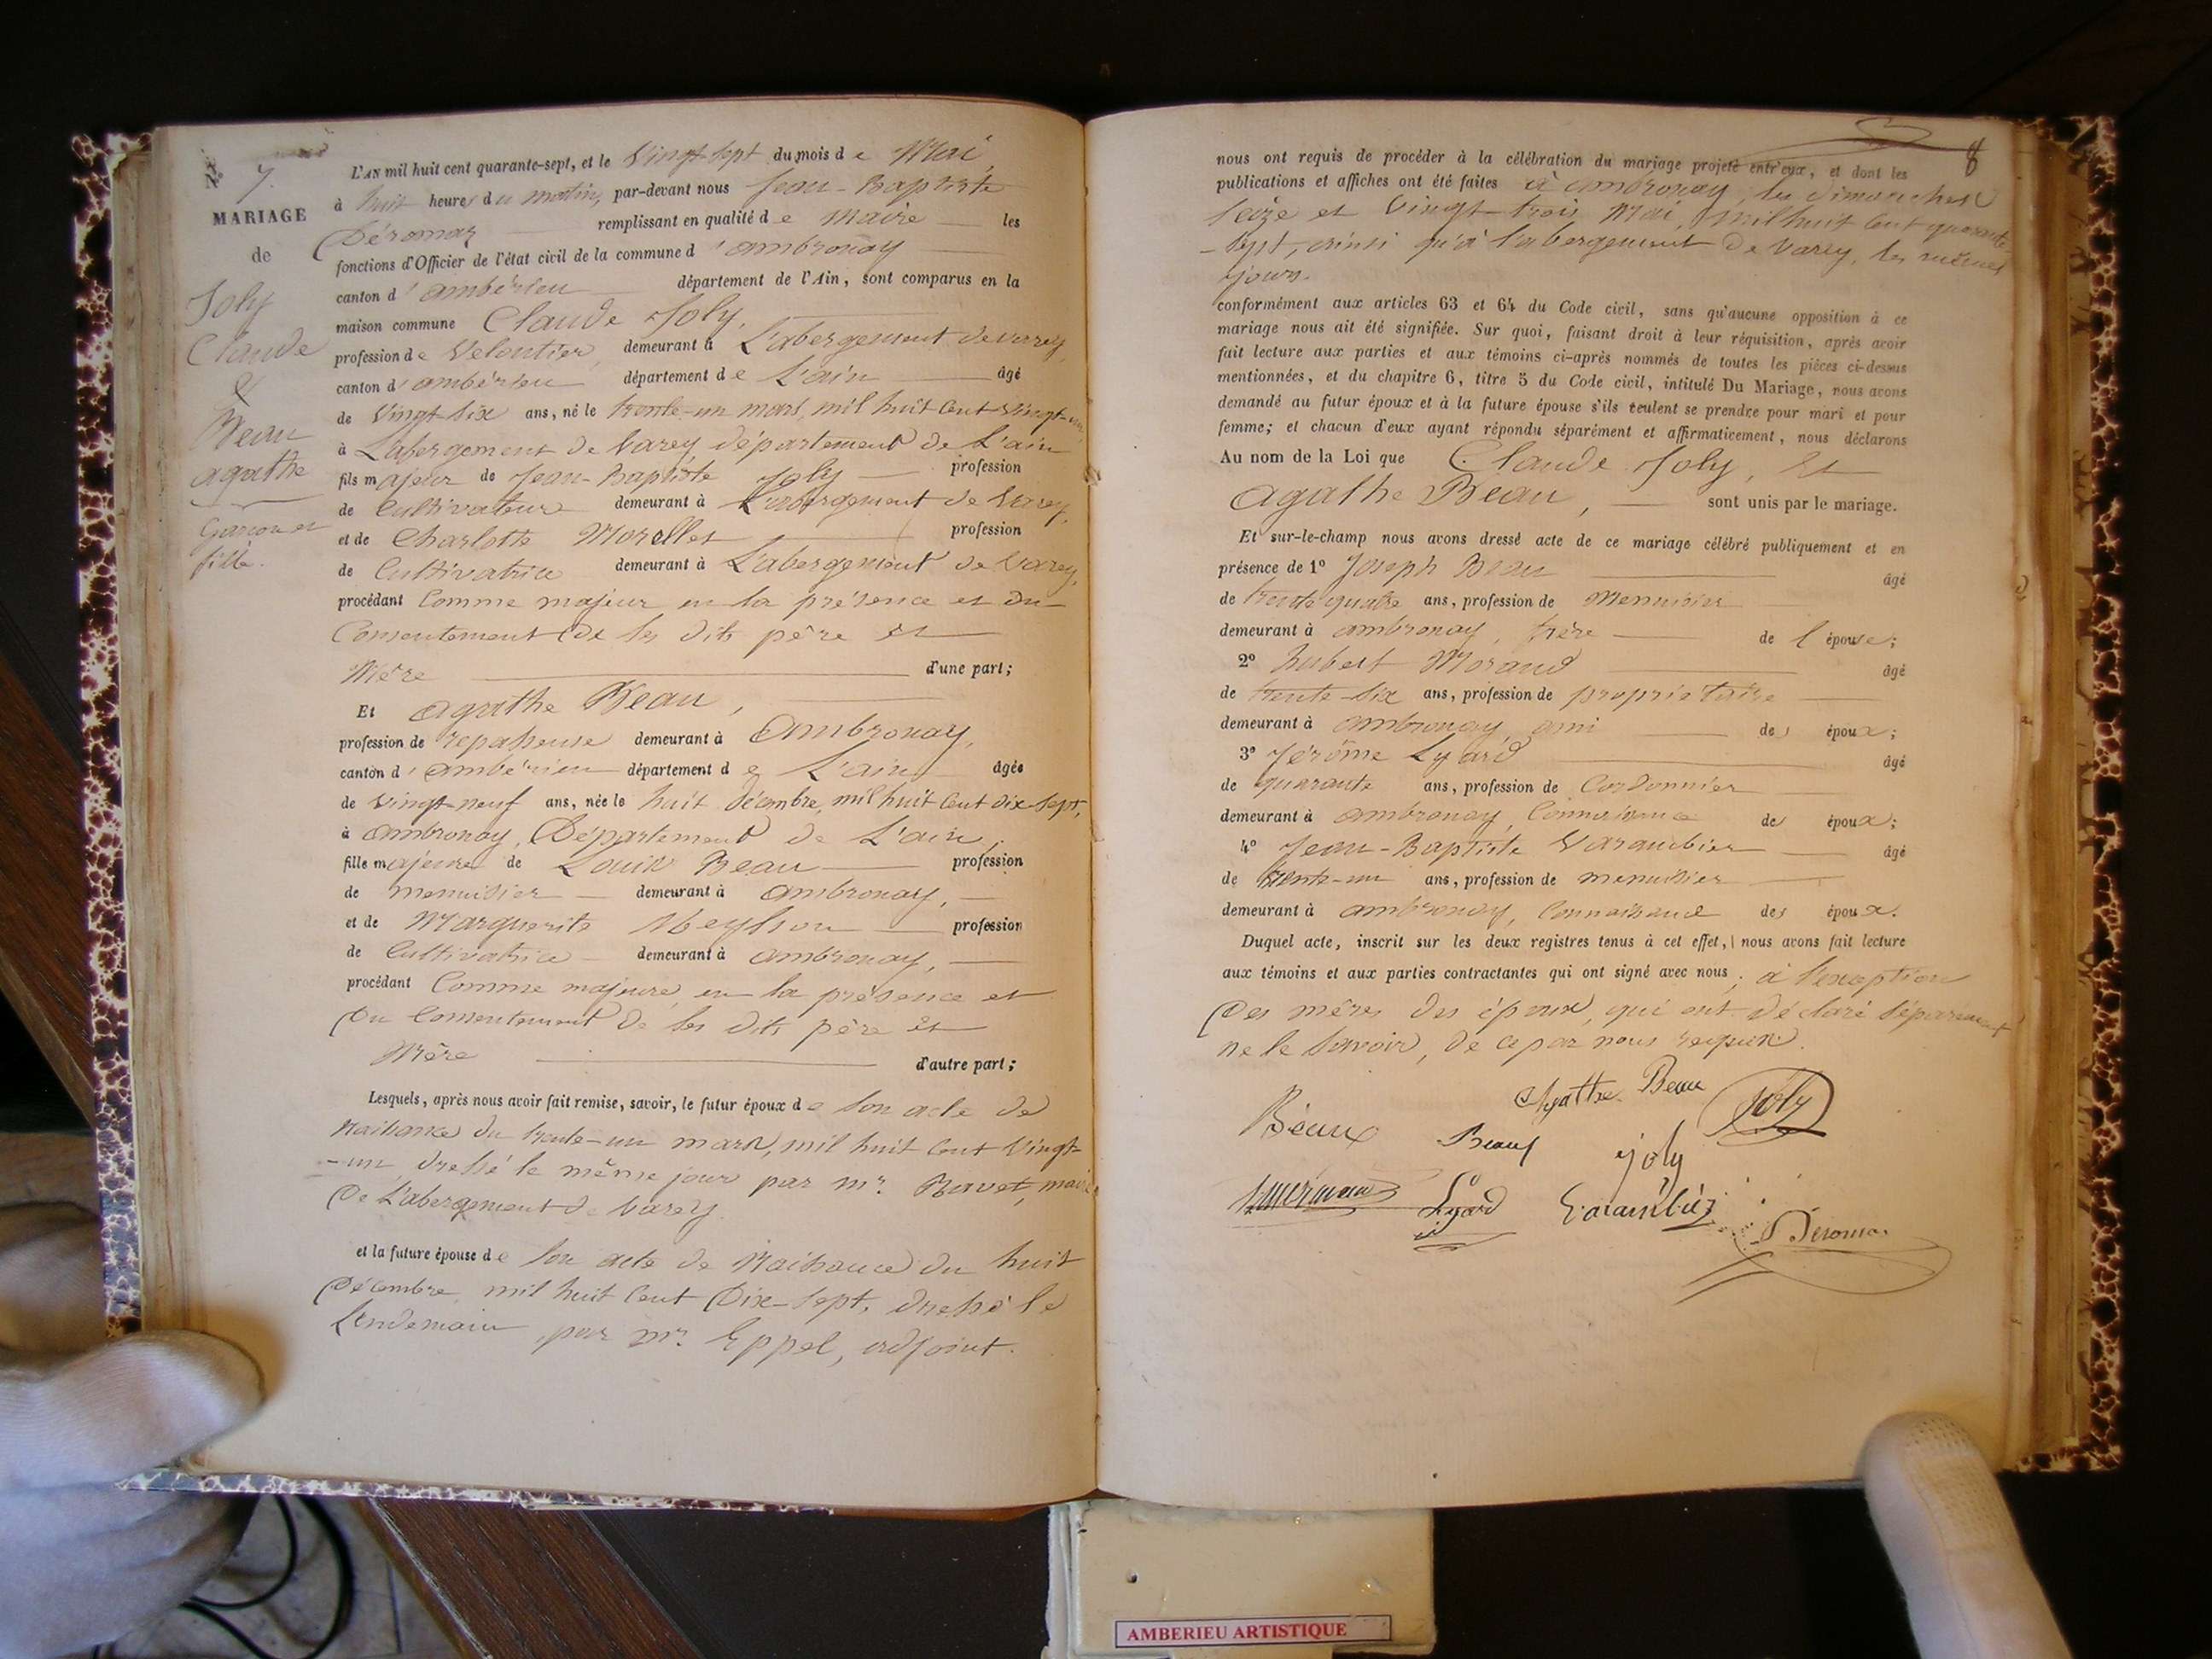 N° 7.
MARIAGE
de
Joly
Claude
&
Beau
agathe
Garçon et
fille.
L'AN mil huit cent quarante-sept, et le Vingt-sept du mois de Mai,
à huit heures du matin, par-devant nous Jean-Baptiste
Déromas remplissant en qualité de maire les
fonctions d'Officier de l'état civil de la commune d'ambronay
canton d'ambérieu département de l'Ain, sont comparus en la
maison commune Claude Joly,
profession de Veloutier, demeurant à L'abergement de varey,
canton d'ambérieu département de L'ain âgé
de Vingt-six ans, né le trente-un mars, mil huit cent vingt-un,
à L'abergement de Varey, département de L'ain
fils majeur de Jean-Baptiste Joly profession
de Cultivateur demeurant à L'abergement de Varey,
et de Charlotte Morellet profession
de Cultivatrice demeurant à L'abergement de Varey,
procédant Comme majeur en la présence et du
Consentement de ses dits père et
Mère d'une part;
Et agathe Beau,
profession de repasseuse demeurant à Ambronay,
canton d'ambérieu département de L'ain âgée
de Vingt-neuf ans, née le huit décembre, mil huit cent dix-sept,
à ambronay, Département de L'ain.
fille majeure de Louis Beau profession
de menuisier demeurant à ambronay,
et de Marguerite profession
de Cultivatrice demeurant à ambronay,
procédant Comme majeure, en la présence et
Du Consentement de ses dits père et
Mère d'autre part;
Lesquels, après nous avoir fait remise, savoir, le futur époux de son acte de
Naissance du trente-un mars, mil huit cent Vingt-
-un, dressé le même jour par mr. Ravet, maire
De L'abergement de Varey.
et la future épouse de son acte de Naissance du huit
Décembre mil huit cent Dix-sept, dressé le
Lendemain, par mr. Eppel, adjoint.
8
nous ont requis de procéder à la célébration du mariage projeté entr'eux, et dont les
publications et affiches ont été faites à ambronay, les dimanches
seize et Vingt-trois Mai, mil huit cent quarante
-sept, ainsi qu'à l'abergement de Varey, les mêmes
jours.
conformément aux articles 63 et 64 du Code civil, sans qu'aucune opposition à ce
mariage nous ait été signifiée. Sur quoi, faisant droit à leur réquisition, après avoir
fait lecture aux parties et aux témoins ci-après nommés de toutes les pièces ci-dessus
mentionnées, et du chapitre 6, titre 5 du Code civil, intitulé Du Mariage, nous avons
demandé au futur époux et à la future épouse s'ils veulent se prendre pour mari et pour
femme; et chacun d'eux ayant répondu séparément et affirmativement, nous déclarons
Au nom de la Loi que Claude Joly, Et
Agathe Beau, sont unis par le mariage.
Et sur-le-champ nous avons dressé acte de ce mariage célébré publiquement et en
présence de 1° Joseph Beau âgé
de trente quatre ans, profession de Menuisier
demeurant à ambronay, frère de l'épouse;
2° hubert Morand âgé
de trente-six ans, profession de propriétaire
demeurant à ambronay, ami des époux;
3° Jérôme Lyard âgé
de quarante ans, profession de Cordonnier
demeurant à ambronay, Connaissance des époux;
4° Jean-Baptiste Varambier âgé
de trente-un ans, profession de menuisier
demeurant à ambronay, Connaissance des époux.
Duquel acte, inscrit sur les deux registres tenus à cet effet, nous avons fait lecture
aux témoins et aux parties contractantes qui ont signé avec nous, à l'exception
Des mères des époux, qui ont déclaré séparément
ne le savoir, de ce par nous requis.
Agathe Beau Joly
Béaux Beau Joly
Lyard Varambier Déromas
AMBERIEU ARTISTIQUE